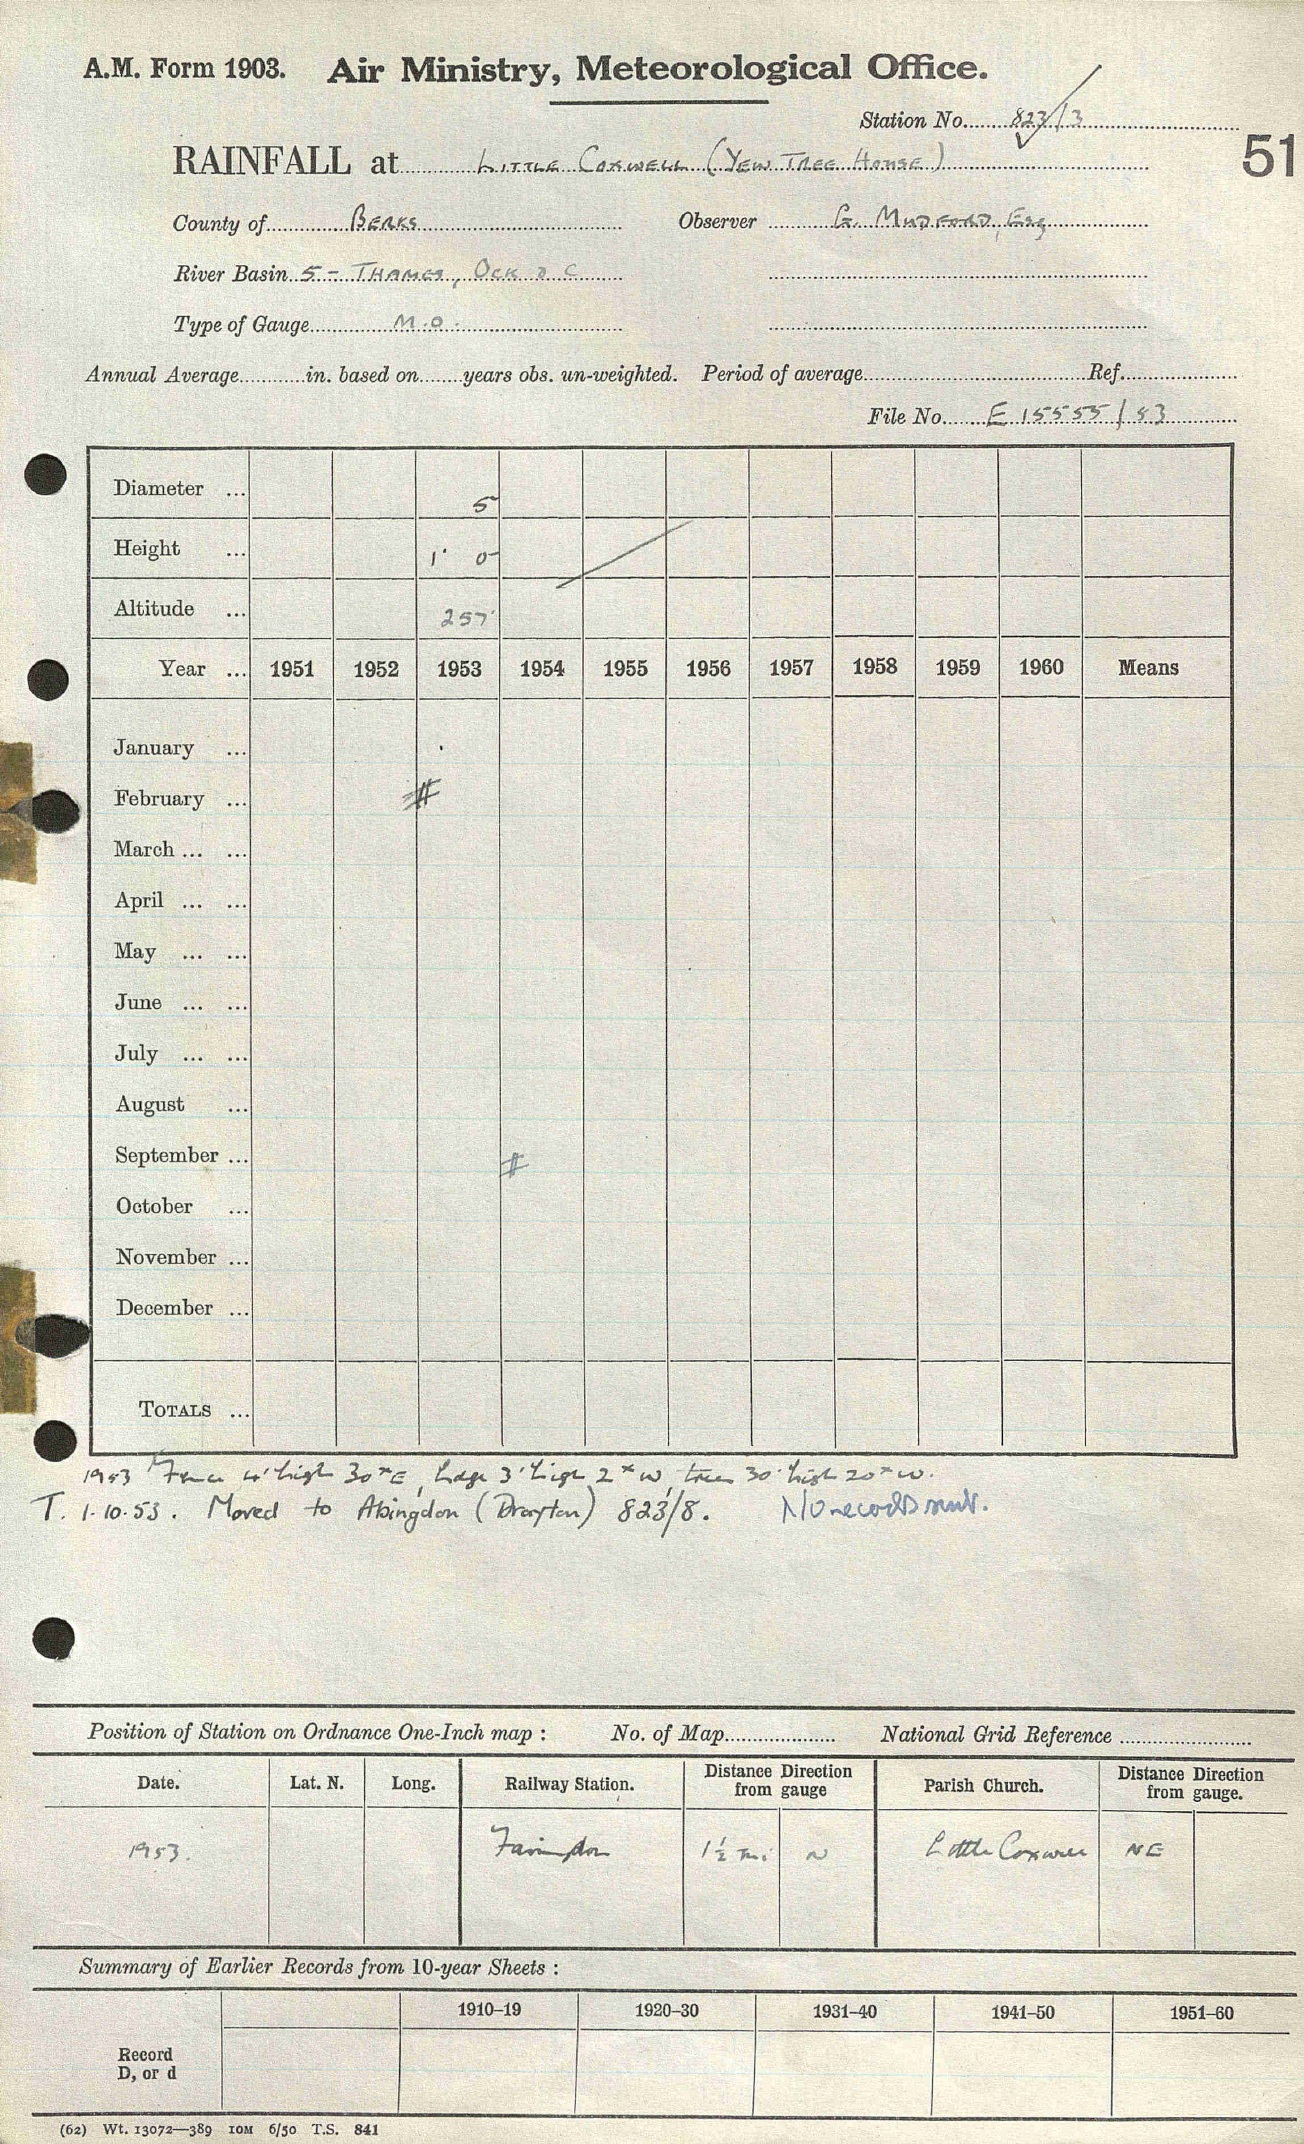 A.M. Form 1903. Air Ministry, Meteorological Office.
Station No. 823/3
51
RAINFALL at LITTLE COXWELL (YEW TREE HOUSE)
County of BERKS Observer G. MUDFORD, Esq
River Basin 5 - THAMES, OCK & C
Type of Gauge M.O.
Annual Average in. based on years obs. un-weighted. Period of average Ref.
File No. E 15555/53
Diameter ... 5
Height ... 1' 0
Altitude ... 257'
Year ... 1951 1952 1953 1954 1955 1956 1957 1958 1959 1960 Means
January ...
February ... #
March ... ...
April ... ...
May ... ...
June ... ...
July ... ...
August ...
September ... #
October ...
November ...
December ...
TOTALS ...
1953 Fence 4' high 30 x E, hedge 3' high 2 x W, trees 30' high 20 x W.
T. 1.10.53. Moved to Abingdon (Drayton) 823/8. No records sent.
Position of Station on Ordnance One-Inch map : No. of Map National Grid Reference
Date. Lat. N. Long. Railway Station. Distance Direction from gauge Parish Church. Distance Direction from gauge.
1953. Faringdon 1½ mi N Little Coxwell NE
Summary of Earlier Records from 10-year Sheets :
1910–19 1920–30 1931–40 1941–50 1951–60
Record
D, or d
(62) Wt. 13072—389 10M 6/50 T.S. 841